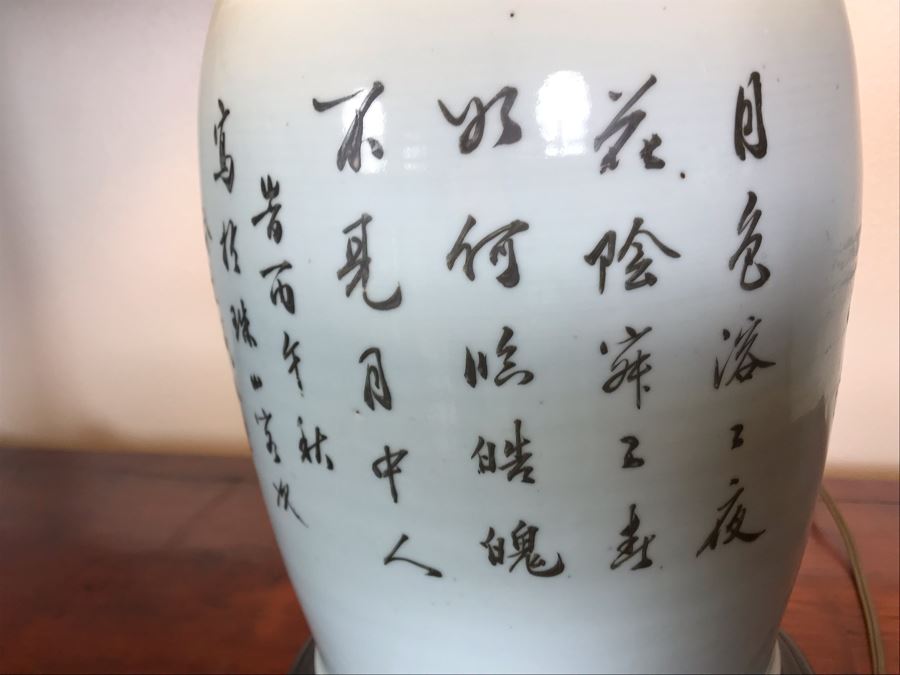 月色溶〻夜
花陰寂〻春
如何臨皓魄
不見月中人
旹丙午秋
寫於珠山客次